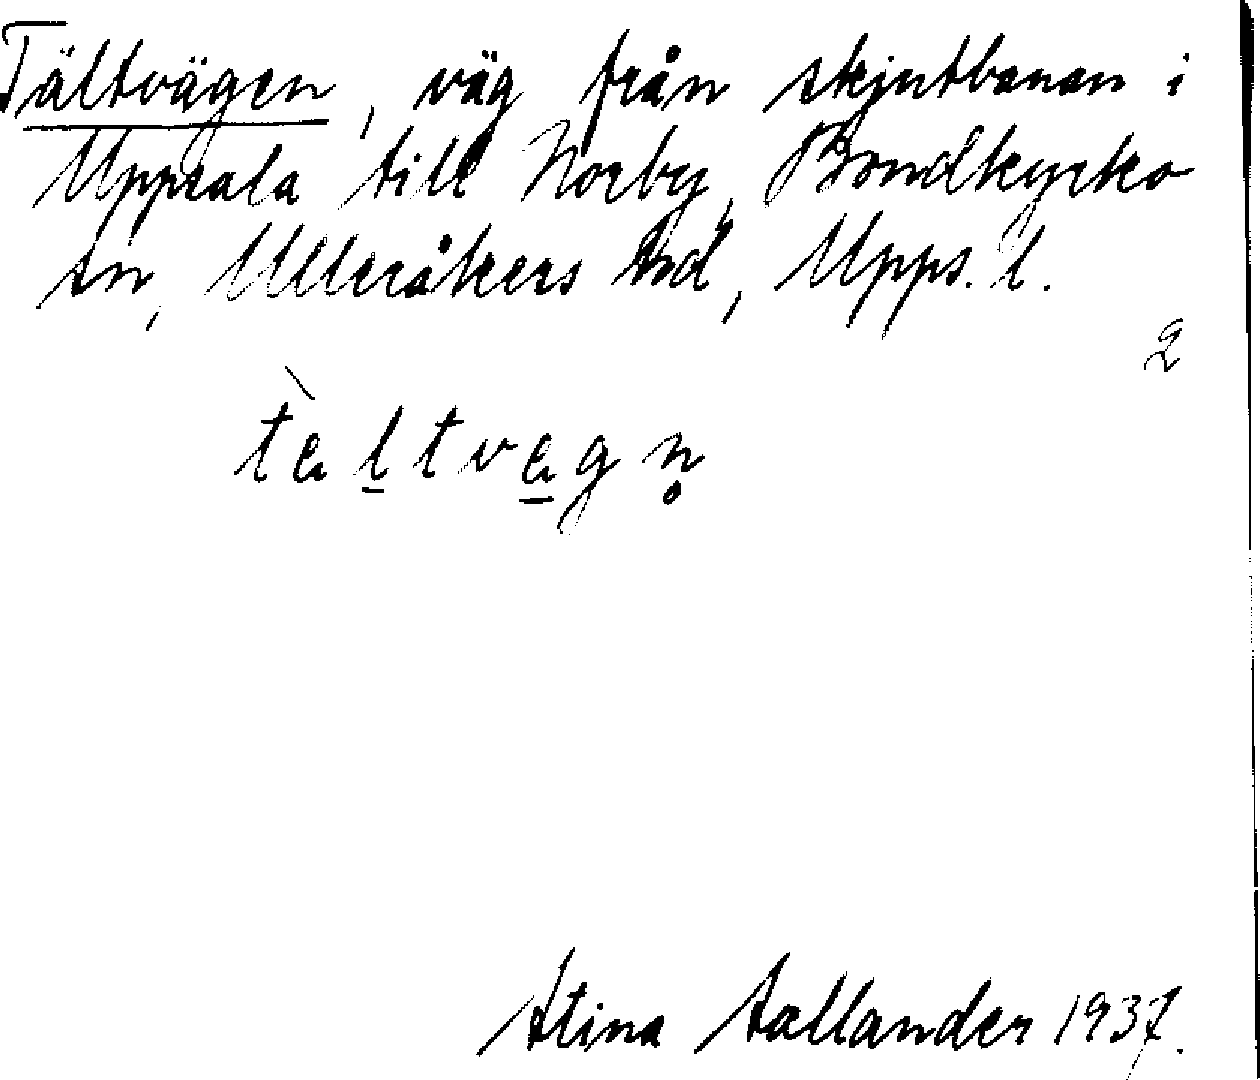 Tältvägen, väg från skjutbanan i
Uppsala till Norby, Bondkyrko
sn, Ulleråkers hd, Upps. l.
2
tàltvägn̥
Stina Sallander 1937.